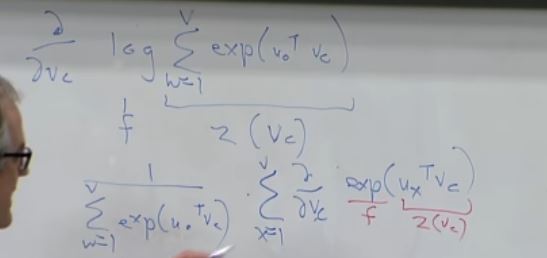 ∂/∂v_c log Σ_{w=1}^{V} exp(u_o^T v_c)
f z(v_c)
1/(Σ_{w=1}^{V} exp(u_o^T v_c)) · Σ_{x=1}^{V} ∂/∂v_c exp(u_x^T v_c)
f z(v_c)